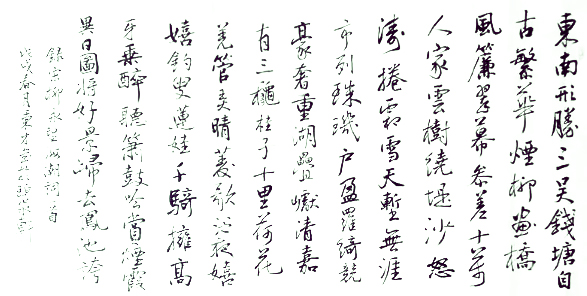 東南形勝三吳錢塘自
古繁華煙柳畫橋
風簾翠幕參差十萬
人家雲樹繞堤沙怒
濤捲霜雪天塹無涯
市列珠璣戶盈羅綺競
豪奢重湖疊巘清嘉
有三穐桂子十里荷花
羌管弄晴菱歌泛夜嬉
嬉釣叟蓮娃千騎擁高
牙乘醉聽簫鼓吟賞煙霞
異日圖將好景歸去鳳池誇
錄宋柳永望海潮詞